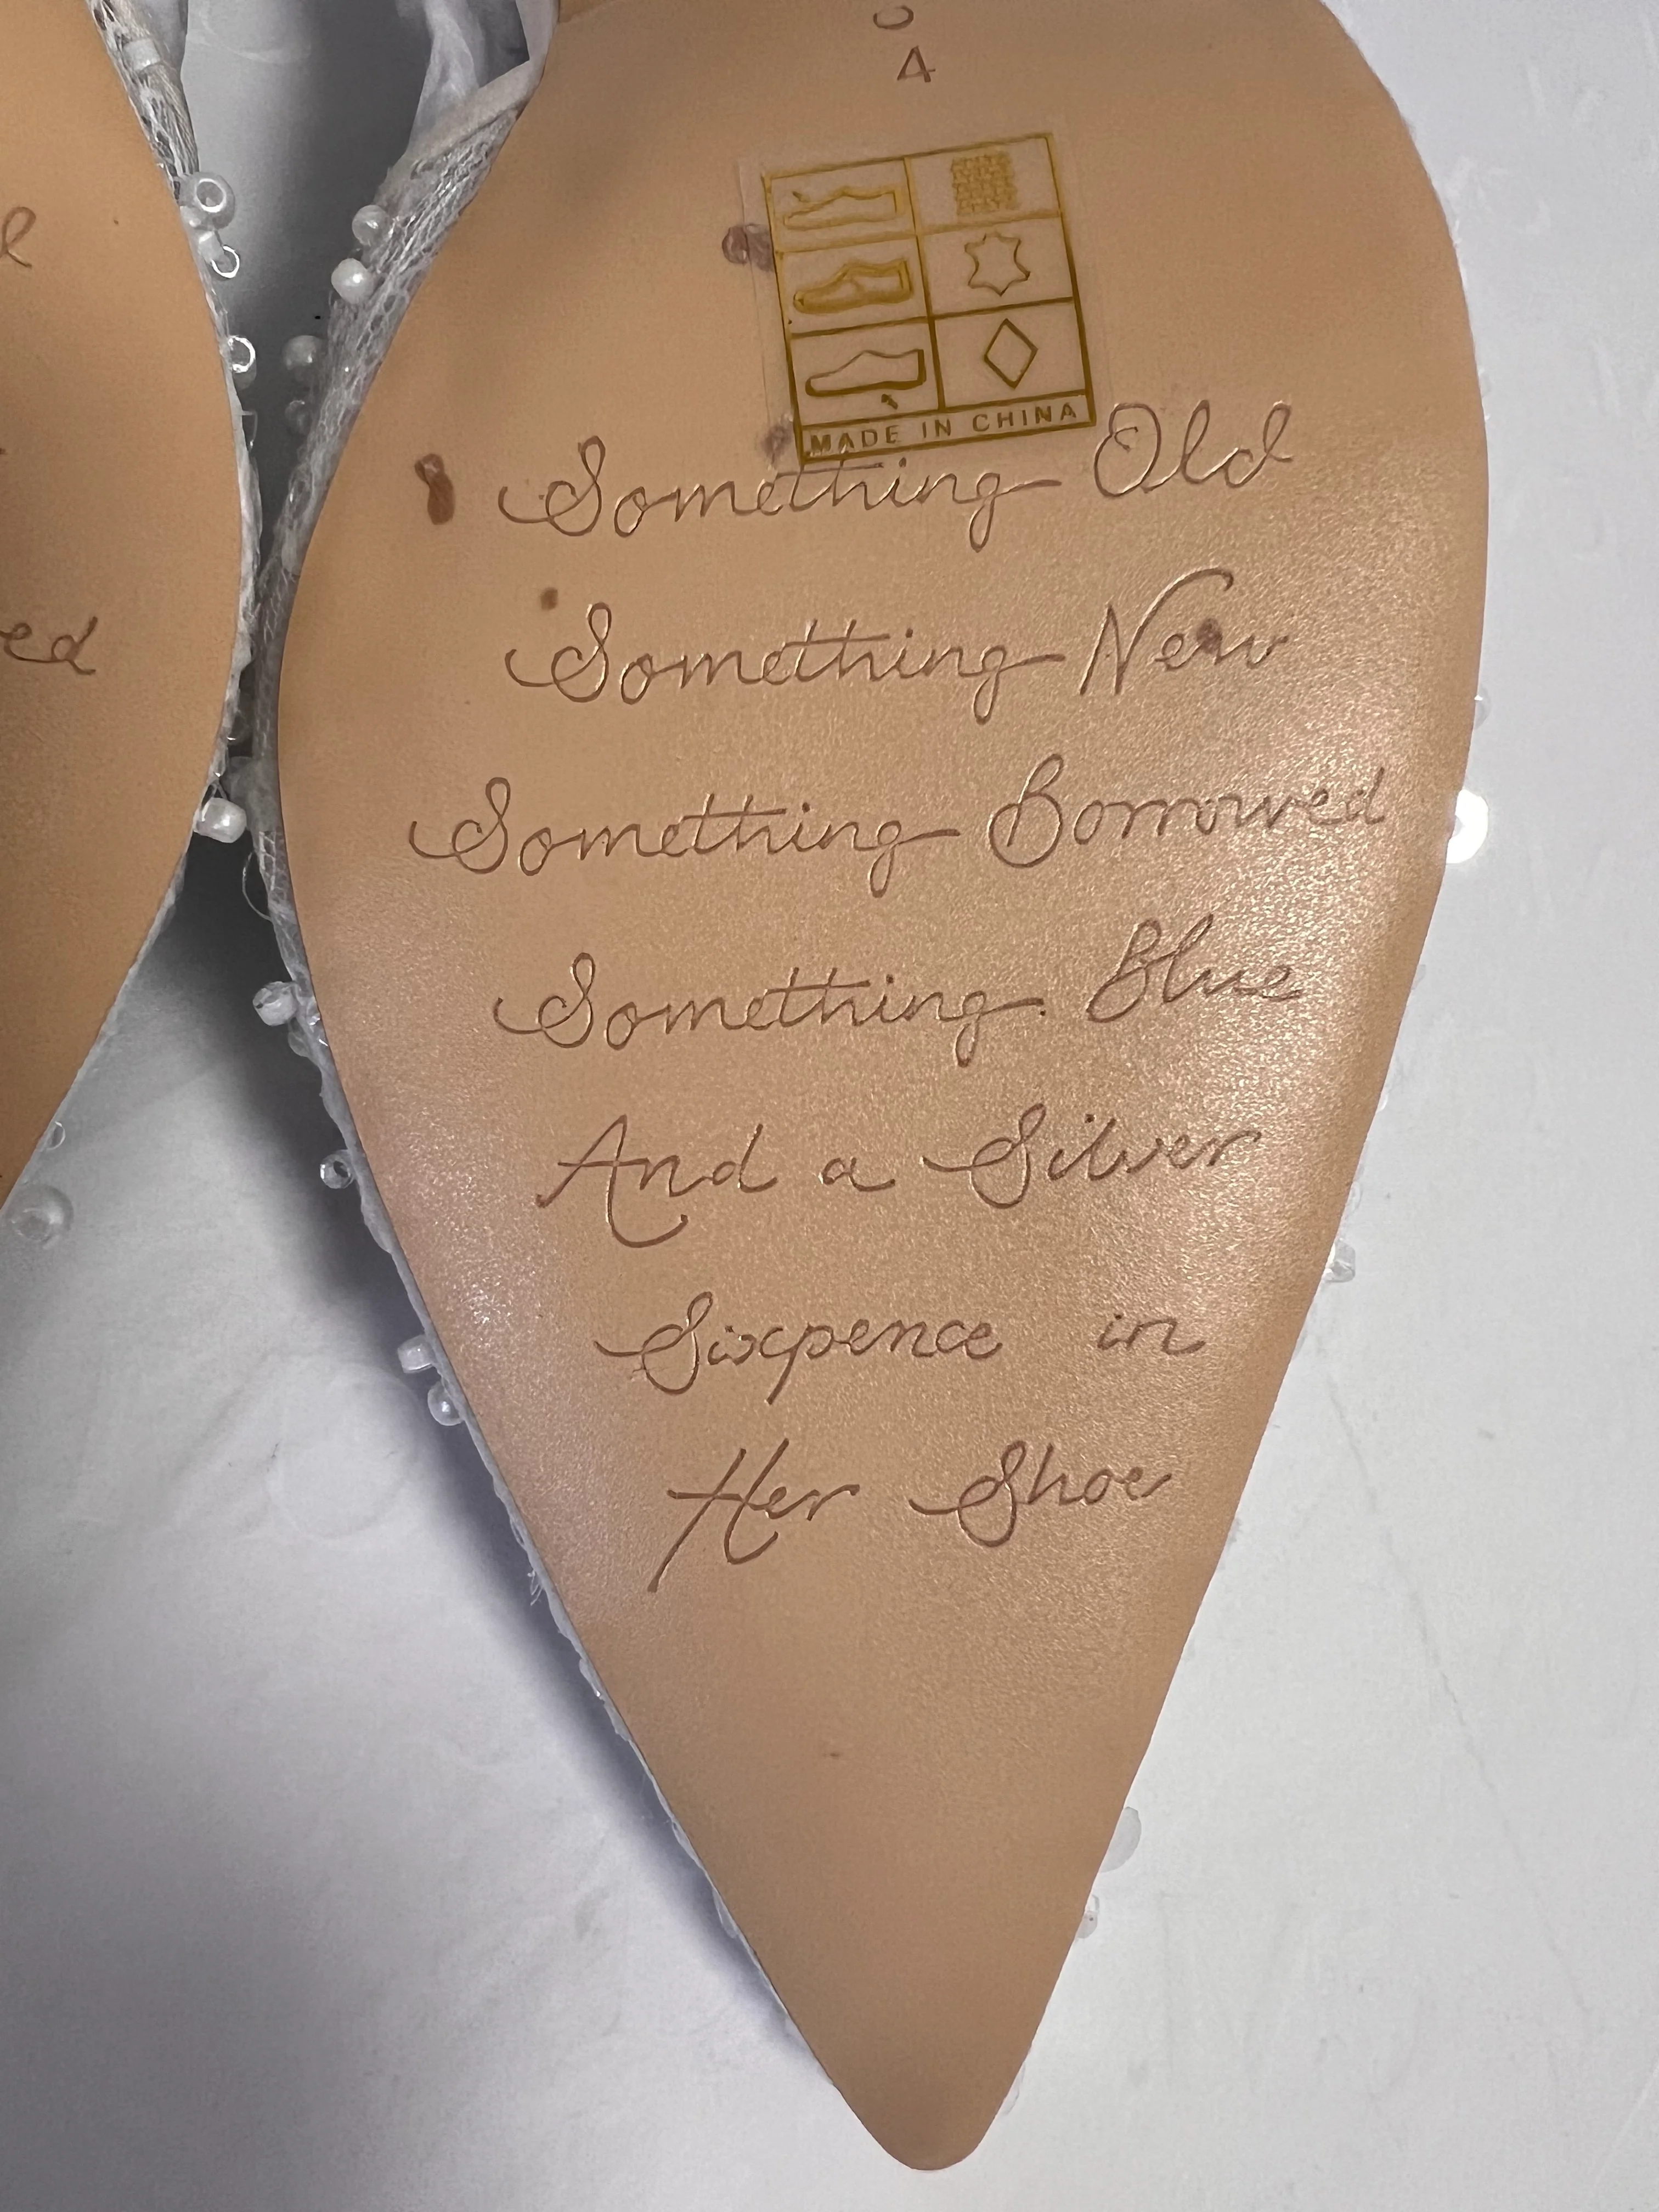 4
MADE IN CHINA
Something Old
Something New
Something Borrowed
Something Blue
And a Silver
Sixpence in
Her Shoe
ed